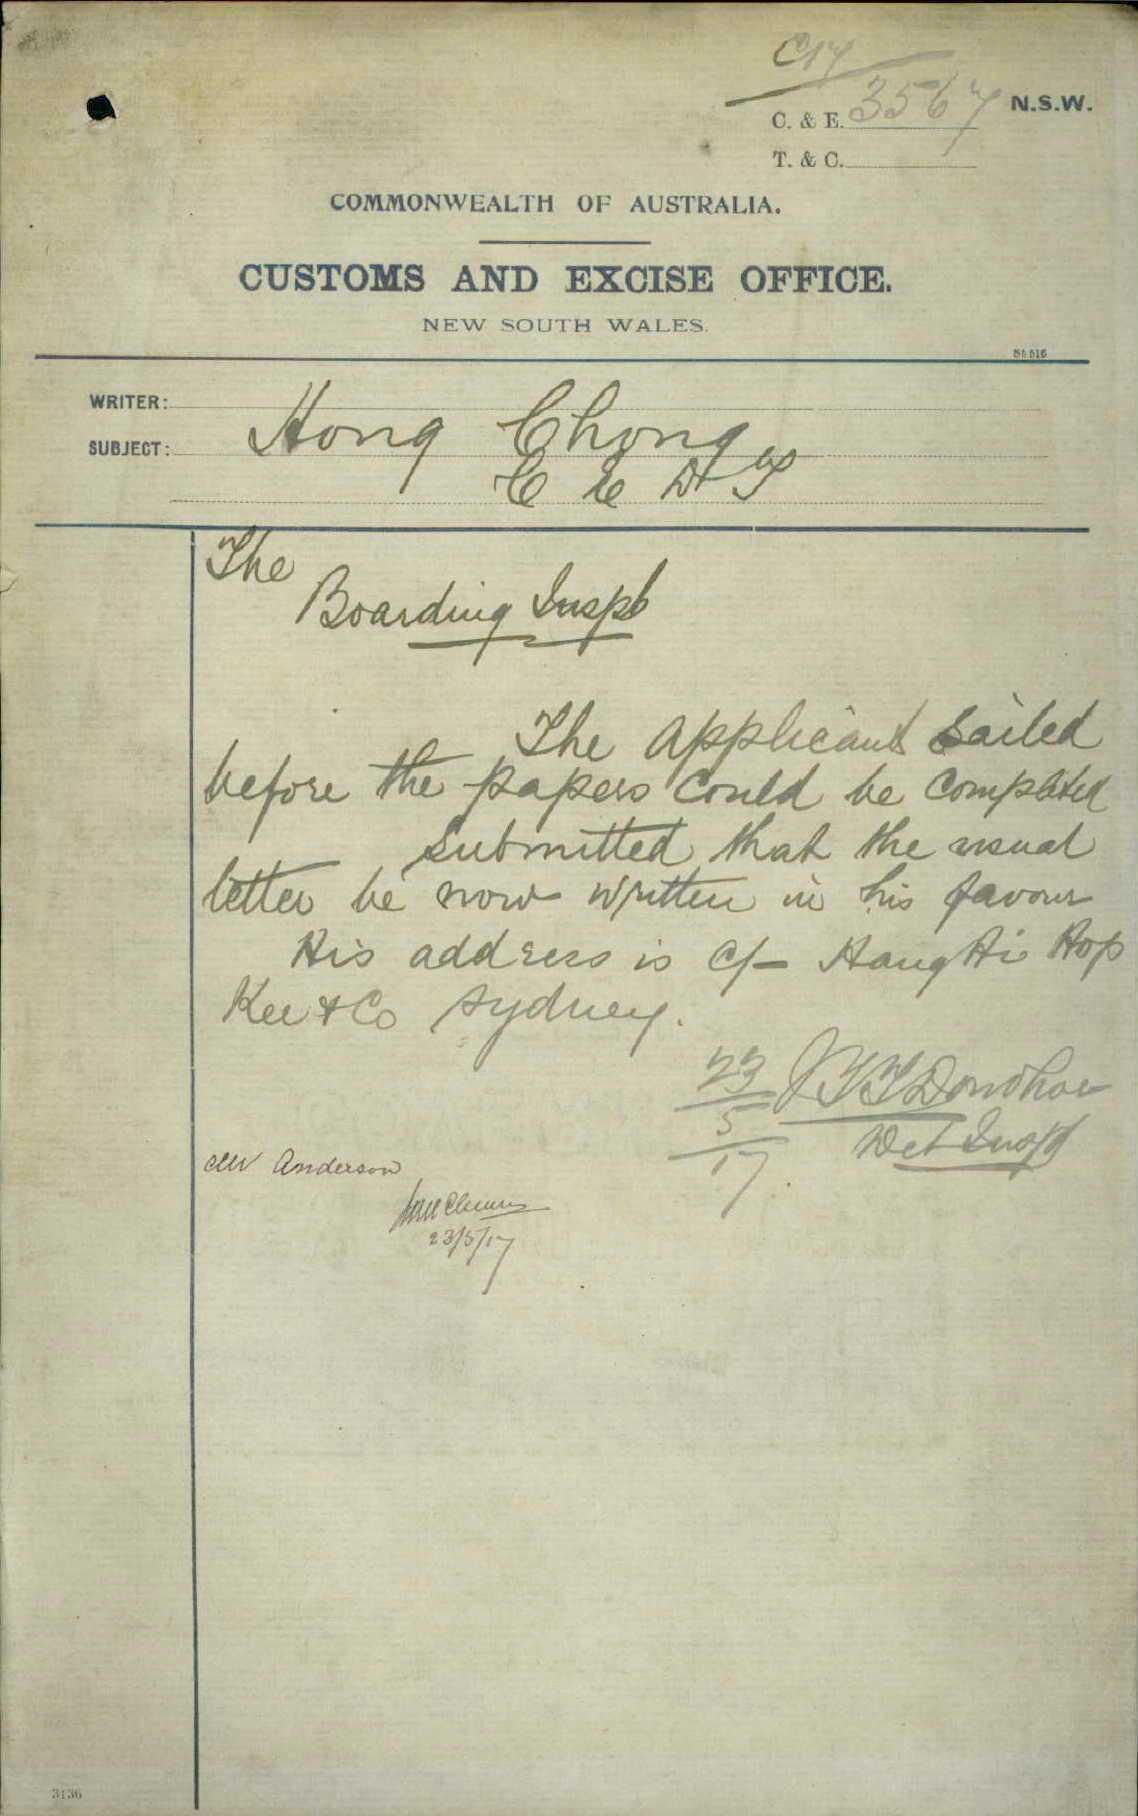 C17
C. & E. 3567 N.S.W.
T. & C.
COMMONWEALTH OF AUSTRALIA.
CUSTOMS AND EXCISE OFFICE.
NEW SOUTH WALES.
WRITER:
SUBJECT: Hong Chong
C E D T
The
Boarding Inspr
The applicant sailed
before the papers could be completed
Submitted that the usual
letter be now written in his favour
His address is C/- Hang Hi Hop
Kee & Co Sydney.
23/5/17 J T T Donohoe
Det Inspr
Mr Anderson
23/5/17
3136